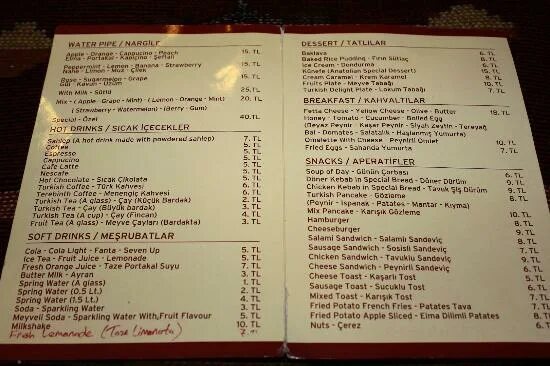 WATER PIPE / NARGİLE
Apple - Orange - Cappucino - Peach 15. TL
Elma - Portakal - Kapiçino - Şeftali
Peppermint - Lemon - Banana - Strawberry 15. TL
Nane - Limon - Muz - Çilek
Rose - Sugarmelon - Grape 15. TL
Gül - Kavun - Üzüm
With Milk - Sütlü 25. TL
Mix - ( Apple - Grape - Mint) - ( Lemon - Orange - Mint) 20. TL
(Strawberry - Watermelon) - (Berry - Gum)
Special - Özel 40. TL
HOT DRINKS / SICAK İÇECEKLER
Sahlep (A hot drink made with powdered sahlep) 7. TL
Coffee 5. TL
Espresso 5. TL
Cappucino
Cafe Latte 5. TL
Nescafe 5. TL
Hot Chocolate - Sıcak Çikolata
Turkish Coffee - Türk Kahvesi 6. TL
Terebinth Coffee - Menengiç Kahvesi
Turkish Tea (A glass) - Çay (Küçük Bardak) 2. TL
Turkish Tea - Çay (Büyük bardak) 3. TL
Turkish Tea (A cup) - Çay (Fincan) 4. TL
Fruit Tea (A glass) - Meyve Çayları (Bardakta) 3. TL
SOFT DRINKS / MEŞRUBATLAR
Cola - Cola Light - Fanta - Seven Up 5. TL
Ice Tea - Fruit Juice - Lemonade 5. TL
Fresh Orange Juice - Taze Portakal Suyu 7. TL
Butter Milk - Ayran 3. TL
Spring Water (A glass) 1. TL
Spring Water (0.5 Lt.) 2. TL
Spring Water (1.5 Lt.) 4. TL
Soda - Sparkling Water 3. TL
Meyveli Soda - Sparkling Water With,Fruit Flavour 5. TL
Milkshake 10. TL
Fresh Lemonade (Taze Limonata) 7. TL
DESSERT / TATLILAR
Baklava 6. TL
Baked Rice Pudding - Fırın Sütlaç 8. TL
Ice Cream - Dondurma 6. TL
Künefe (Anatolian Special Dessert) 15. TL
Cream Caramel - Krem Karamel 8. TL
Fruits Plate - Meyve Tabağı 10. TL
Turkish Delight Plate - Lokum Tabağı 7. TL
BREAKFAST / KAHVALTILAR
Fetta Cheese - Yellow Cheese - Olive - Butter 18. TL
Honey - Tomato - Cucumber - Boiled Egg
(Beyaz Peynir - Kaşar Peynir - Siyah Zeytin - Tereyağ
Bal - Domates - Salatalık - Haşlanmış Yumurta)
Omelette With Cheese - Peynirli Omlet 10. TL
Fried Eggs - Sahanda Yumurta 7. TL
SNACKS / APERATİFLER
Soup of Day - Günün Çorbası 6. TL
Döner Kebab in Special Bread - Döner Dürüm 9. TL
Chicken Kebab in Special Bread - Tavuk Şiş Dürüm 9. TL
Turkish Pancake - Gözleme
(Peynir - Ispanak - Patates - Mantar - Kıyma) 9. TL
Mix Pancake - Karışık Gözleme
Hamburger 10. TL
Cheeseburger 9. TL
Salami Sandwich - Salamlı Sandeviç
Sausage Sandwich - Sosisli Sandeviç 7. TL
Chicken Sandwich - Tavuklu Sandeviç 9. TL
Cheese Sandwich - Peynirli Sandeviç
Cheese Toast - Kaşarlı Tost 5. TL
Sausage Toast - Sucuklu Tost 6. TL
Mixed Toast - Karışık Tost
Fried Potato French Fries - Patates Tava 7. TL
Fried Potato Apple Sliced - Elma Dilimli Patates
Nuts - Çerez 6. TL